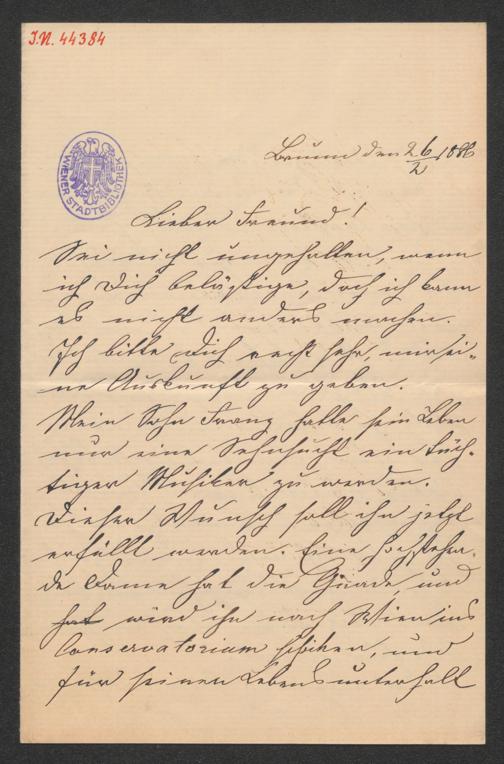 I.N. 44384
WIENER STADTBIBLIOTHEK
Brünn den 26/2 1886
Lieber Freund!
Sei nicht ungehalten, wenn
ich Dich belästige, doch ich kann
es nicht anders machen.
Ich bitte Dich recht sehr, mir ei=
ne Auskunft zu geben.
Mein Sohn Franz hatte sein Leben
nur eine Sehnsucht ein tüch=
tiger Musiker zu werden.
Dieser Wunsch soll ihn jetzt
erfüllt werden. Eine hochstehen=
de Dame hat die Gnade, und
hat wird ihn nach Wien ins
Conservatorium schicken, und
für seinen Lebensunterhalt